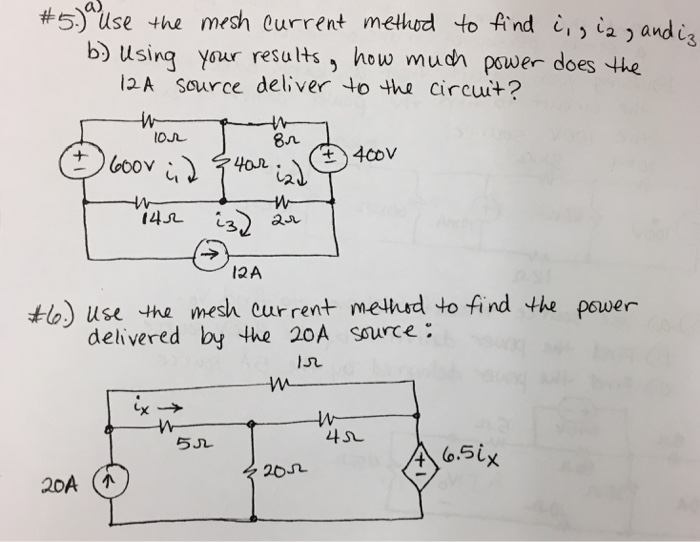 #5.) a) Use the mesh current method to find i₁, i₂, and i₃
b.) Using your results, how much power does the
12A source deliver to the circuit?
10Ω 8Ω
+ - 600V i₁ 40Ω i₂ + - 400V
14Ω i₃ 2Ω
12A
#6.) Use the mesh current method to find the power
delivered by the 20A source:
1Ω
ix →
5Ω 4Ω
20A 20Ω + - 6.5ix